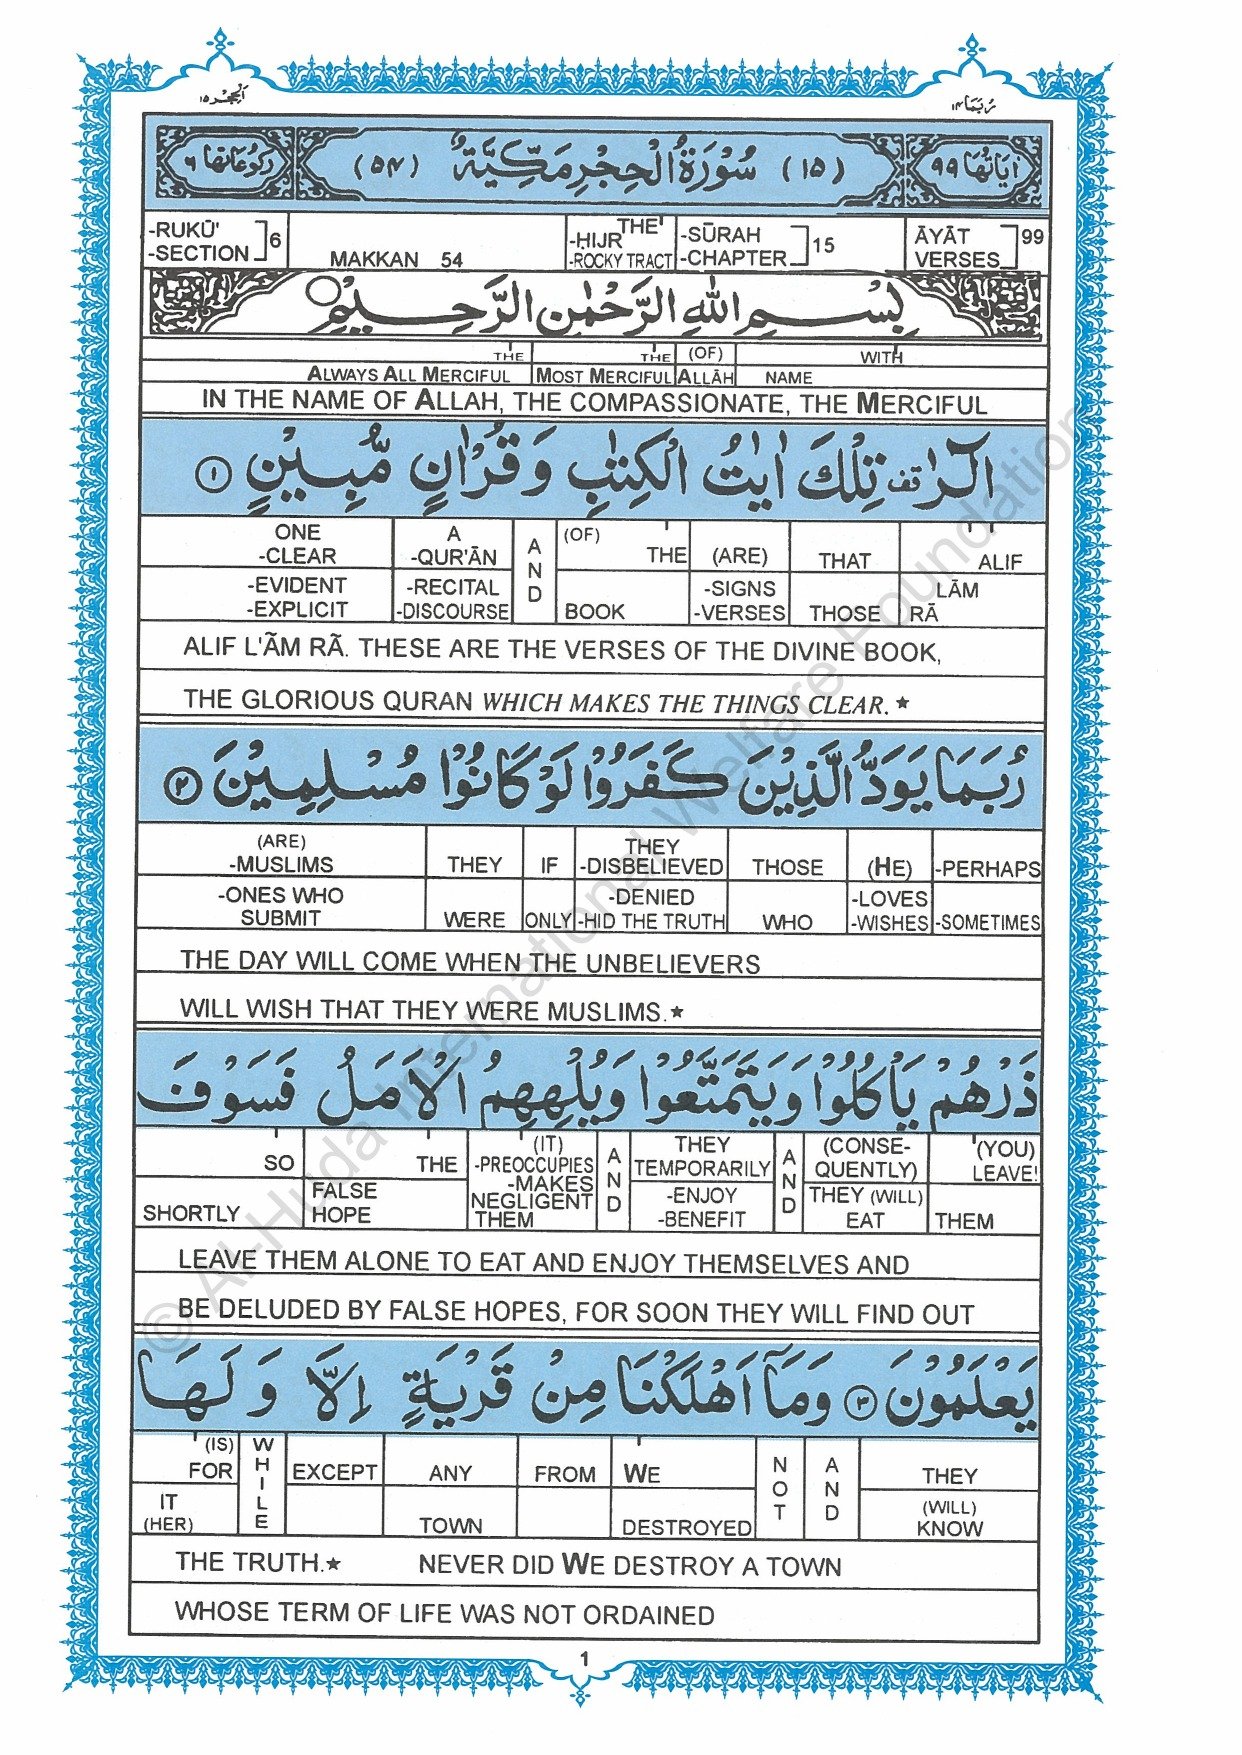 اَلْحِجْر ١٥
رُبَمَا ١٤
اٰیَاتُهَا ٩٩
(١٥) سُوْرَةُ الْحِجْرِ مَكِّيَّةٌ (٥٤)
رُكُوْعَاتُهَا ٦
-RUKŪ' -SECTION 6 MAKKAN 54 THE -ḤIJR -ROCKY TRACT -SŪRAH -CHAPTER 15 ĀYĀT VERSES 99
بِسْمِ اللهِ الرَّحْمٰنِ الرَّحِيْمِ
THE THE (OF) WITH
ALWAYS ALL MERCIFUL MOST MERCIFUL ALLĀH NAME
IN THE NAME OF ALLAH, THE COMPASSIONATE, THE MERCIFUL
الٓرٰ قف تِلْكَ اٰيٰتُ الْكِتٰبِ وَ قُرْاٰنٍ مُّبِيْنٍ ١
ONE A A (OF)
-CLEAR -QUR'ĀN N THE (ARE) THAT ALIF
-EVIDENT -RECITAL D -SIGNS LĀM
-EXPLICIT -DISCOURSE BOOK -VERSES THOSE RĀ
ALIF L'ÃM RÃ. THESE ARE THE VERSES OF THE DIVINE BOOK,
THE GLORIOUS QURAN WHICH MAKES THE THINGS CLEAR.★
رُبَمَا يَوَدُّ الَّذِيْنَ كَفَرُوْا لَوْ كَانُوْا مُسْلِمِيْنَ ٢
(ARE) THEY
-MUSLIMS THEY IF -DISBELIEVED THOSE (HE) -PERHAPS
-ONES WHO -DENIED -LOVES
SUBMIT WERE ONLY -HID THE TRUTH WHO -WISHES -SOMETIMES
THE DAY WILL COME WHEN THE UNBELIEVERS
WILL WISH THAT THEY WERE MUSLIMS.★
ذَرْهُمْ يَاْكُلُوْا وَيَتَمَتَّعُوْا وَيُلْهِهِمُ الْاَمَلُ فَسَوْفَ
(IT) THEY (CONSE- (YOU)
SO THE -PREOCCUPIES AND TEMPORARILY AND QUENTLY) LEAVE!
FALSE -MAKES -ENJOY THEY (WILL)
SHORTLY HOPE NEGLIGENT THEM -BENEFIT EAT THEM
LEAVE THEM ALONE TO EAT AND ENJOY THEMSELVES AND
BE DELUDED BY FALSE HOPES, FOR SOON THEY WILL FIND OUT
يَعْلَمُوْنَ ٣ وَمَآ اَهْلَكْنَا مِنْ قَرْيَةٍ اِلَّا وَ لَهَا
(IS) WHILE NOT AND
FOR EXCEPT ANY FROM WE THEY
IT (WILL)
(HER) TOWN DESTROYED KNOW
THE TRUTH.★ NEVER DID WE DESTROY A TOWN
WHOSE TERM OF LIFE WAS NOT ORDAINED
1
© Al-Huda International Welfare Foundation